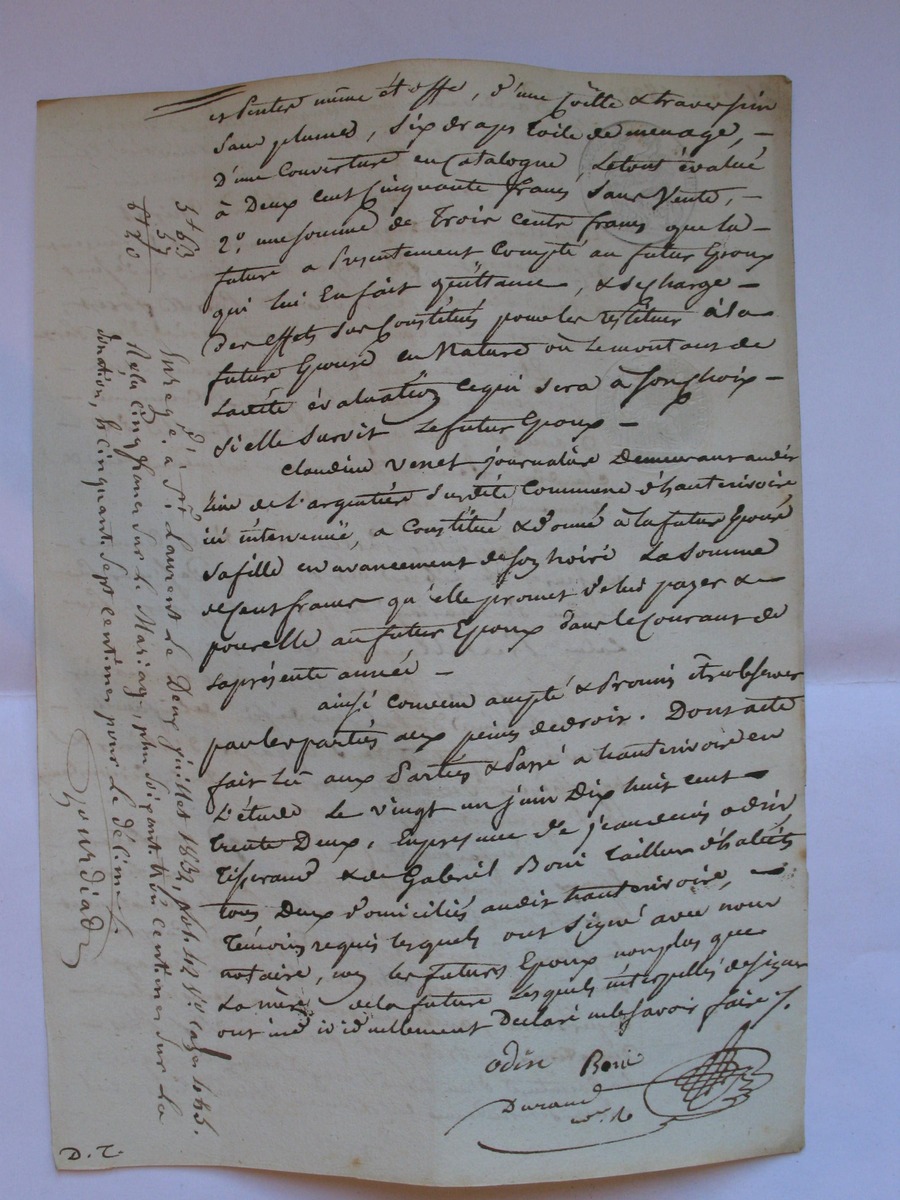 et Pentes même étoffe, d'une Coëtte & traversin
Sans plumes, Six draps toile de menage, —
D'une Couverture en Catalogne, Letout évalué
à Deux cent Cinquante francs Sans Vente, —
2°. une Somme de Trois cents francs que la
future a Presentement Compté au futur Epoux
qui lui En fait quittance, & se charge —
Des effets Sus Constitués pour les restituer à la
future Epouse en Nature ou Lemontant de
Ladite évaluation Cequi sera à Son choix —
Si elle Survit Le futur Epoux —
Claudine Venet journalière Demeurant audit
Lieu de L'argentière Susdite Commune d'hauterivoire
ici intervenue, a Constitué & donné à La future Epouse
Sa fille en avancement de son hoirie La Somme
de Cent francs qu'elle promet de lui payer &
pour elle au futur Epoux dans le Courant de
La présente année —
ainsi Convenu accepté & Promis être observer
par les parties aux peines de droit. Dont acte
fait Lu aux Parties & Passé a hauterivoire en
L'étude Le vingt un juin Dix huit cent —
trente Deux, En presence de jean denis odin
Tisserand & de Gabriel Boni Tailleur d'habits
tous Deux domiciliés audit hauterivoire, —
Témoins requis lesquels ont Signé avec nous
notaire, non les futurs Epoux non plus que
La mère de la future Lesquels interpellés de signer
ont individuellement Declaré ne le savoir faire
odin Boni
Durand
nre
D. T.
5+63
57
6+20
Enreg. é à St. Laurent Le Deux juillet 1832, fol. 42 Vo. case
Reçu Cinq francs sur le Mariage, plus Soixante trois Centimes sur La
donation, & cinquante sept centimes pour Le décime
Gourdiad